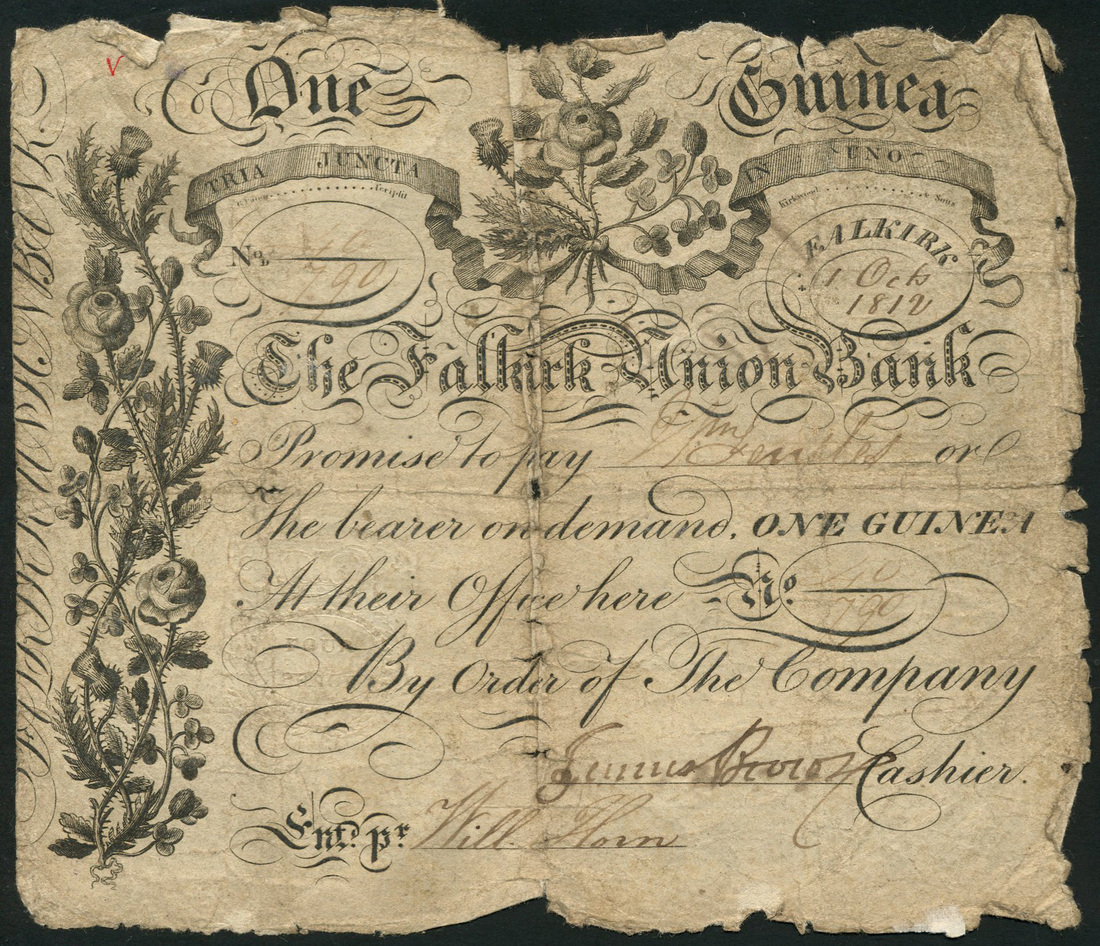 One Guinea
TRIA JUNCTA IN UNO
Scripsit Kirkwood & Sons
No. 46/790
FALKIRK
1 Oct
1812
The Falkirk Union Bank
Promise to pay Wm or
The bearer on demand, ONE GUINEA
At their Office here No. 46/790
By Order of The Company
James Brown Cashier.
Entd. pr Will. Horn
FALKIRK UNION BANK